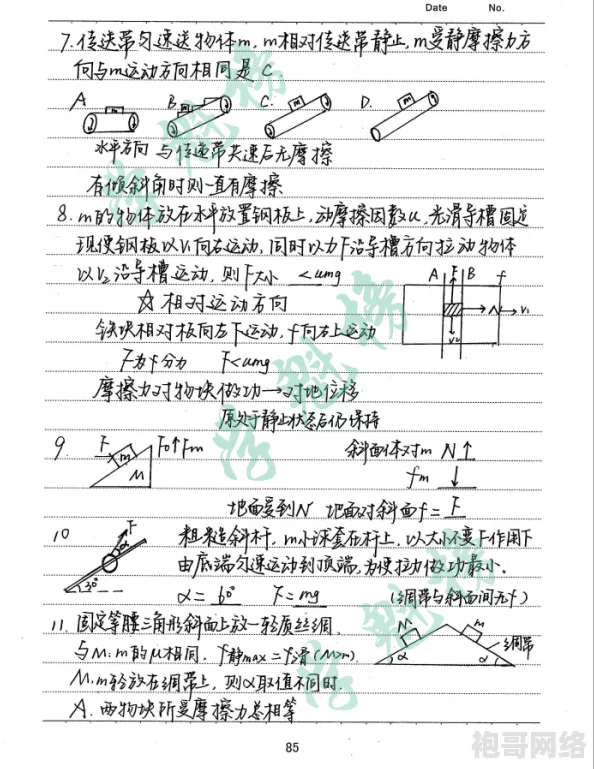 Date No.
7. 传送带匀速送物体m, m相对传送带静止, m受静摩擦力方
向与m运动方向相同是 C
A B. C. D.
m m m m
水平方向 与传送带共速后无摩擦
有倾斜角时则一直有摩擦
8. m的物体放在水平放置钢板上, 动摩擦因数u, 光滑导槽固定
现使钢板以V₁向右运动, 同时以力F沿导槽方向拉动物体
以V₂沿导槽运动, 则F大小 <umg
A F B f
V₁
V₂
☆ 相对运动方向
铁块相对板向左下运动, f向右上运动
F为f分力 F<umg
摩擦力对物块做功→对地位移
原处于静止状态后仍保持
9. F m M F0↑Fm 斜面体对m N↑
fm ↓
地面受到N 地面对斜面f = F
10 F α 30°
粗糙斜杆, m小球套在杆上, 以大小不变F作用下
由底端匀速运动到顶端, 为使拉力做功最小.
α= 60° F= mg (绸带与斜面间无f)
11. 固定等腰三角形斜面上放一轻质丝绸,
与M.m的μ相同. f静max=f滑 (M>m).
M m 绸带
α α
M.m轻放在绸带上, 则α取值不同时.
A. 两物块所受摩擦力总相等
85
袍哥网络